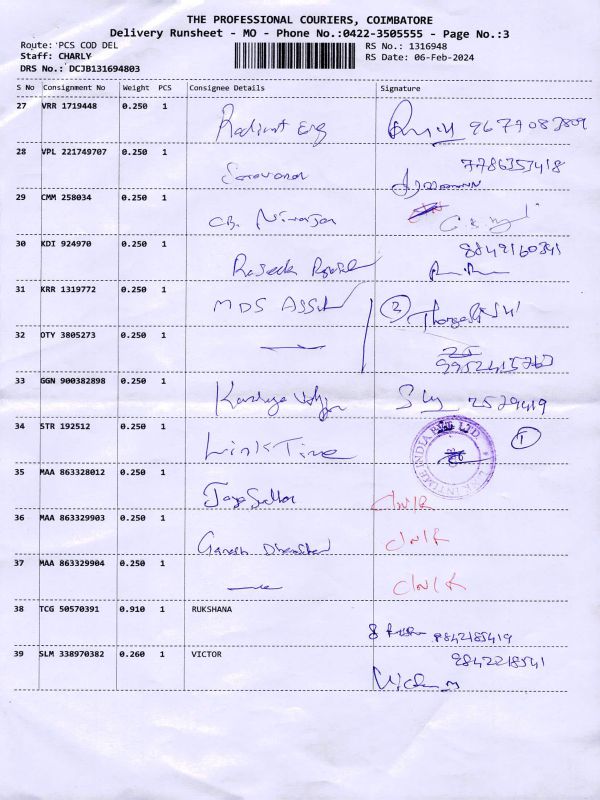 THE PROFESSIONAL COURIERS, COIMBATORE
Delivery Runsheet - MO - Phone No.:0422-3505555 - Page No.:3
Route: PCS COD DEL RS No.: 1316948
Staff: CHARLY RS Date: 06-Feb-2024
DRS No.: DCJB131694803
S No Consignment No Weight PCS Consignee Details Signature
27 VRR 1719448 0.250 1 Radiant Eng
28 VPL 221749707 0.250 1 Saravanan 7786353418
29 CMM 258034 0.250 1 CB. Niranjan
30 KDI 924970 0.250 1 8849160341
31 KRR 1319772 0.250 1 MDS 2
32 OTY 3805273 0.250 1 9952415767
33 GGN 900382898 0.250 1 2529419
34 STR 192512 0.250 1 Link Time INTIME INDIA PVT LTD 1
35 MAA 863328012 0.250 1 CNIR
36 MAA 863329903 0.250 1 Ganesh CNIR
37 MAA 863329904 0.250 1 CNIR
38 TCG 50570391 0.910 1 RUKSHANA 9842185419
39 SLM 338970382 0.260 1 VICTOR 9842218541